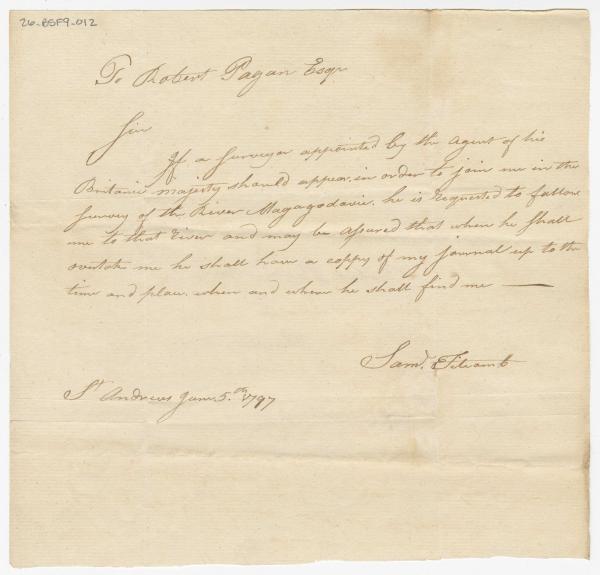 26-BSF9-012
To Robert Pagan Esqr
Sir
If a Surveyor appointed by the Agent of his
Britanic majesty should appear, in order to join me in the
Survey of the River Magagodavic, he is requested to follow
me to that River and may be assured that when he shall
overtake me he shall have a coppy of my Journal up to the
time and place, when and where he shall find me —
Saml. Titcomb
St Andrews Jany. 5.th 1797